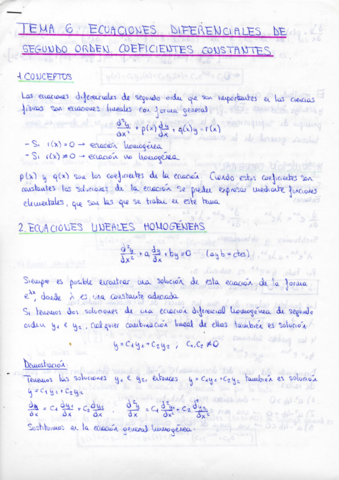 TEMA 6. ECUACIONES DIFERENCIALES DE
SEGUNDO ORDEN. COEFICIENTES CONSTANTES.
1. CONCEPTOS
Las ecuaciones diferenciales de segundo orden que son importantes en las ciencias
físicas son ecuaciones lineales con forma general:
d²y/dx² + p(x) dy/dx + q(x)y = r(x)
- Si r(x) = 0 → ecuación homogénea
- Si r(x) ≠ 0 → ecuación no homogénea.
p(x) y q(x) son los coeficientes de la ecuación. Cuando estos coeficientes son
constantes las soluciones de la ecuación se pueden expresar mediante funciones
elementales, que son las que se tratan en este tema.
2. ECUACIONES LINEALES HOMOGÉNEAS
d²y/dx² + a dy/dx + by = 0 (a y b = ctes)
Siempre es posible encontrar una solución de esta ecuación de la forma
e^λx, donde λ es una constante adecuada.
Si tenemos dos soluciones de una ecuación diferencial homogénea de segundo
orden y₁ e y₂, cualquier combinación lineal de ellas también es solución
y = C₁y₁ + C₂y₂ ; C₁, C₂ ≠ 0
Demostración:
Tenemos las soluciones y₁ e y₂, entonces y = C₁y₁ + C₂y₂ también es solución
y = C₁y₁ + C₂y₂
dy/dx = C₁ dy₁/dx + C₂ dy₂/dx d²y/dx² = C₁ d²y₁/dx² + C₂ d²y₂/dx²
Sustituimos en la ecuación general homogénea